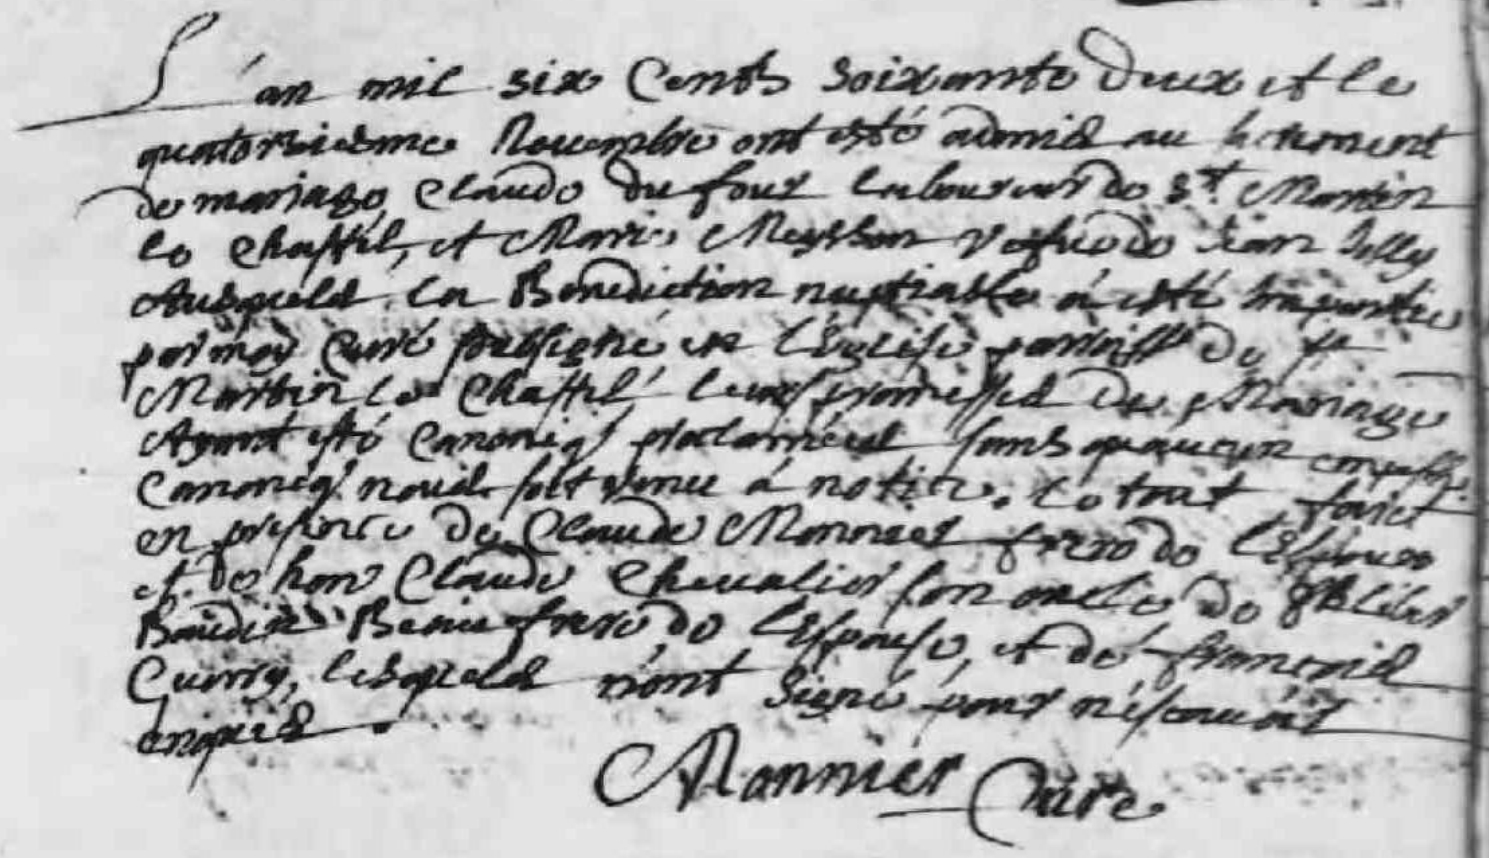 L'an mil six Cents soixante deux et le
quatorziesme Novembre ont esté admis au
de mariage Claude du four laboureur de St. Martin
le Chastel, et Marie vefve de Jean
Ausquels la Benediction nuptialle à esté impartie
par moy Curé soubsigné en l'Eglise parroiss de St
Martin le Chastel leurs promesses de Mariage
Ayant esté Canoniq proclamées sans qu'aucun
Canoniq nous soit venu à notice. Le tout faict
en presence de Claude Monnier frere de l'Espoux
et de hon Claude Chevalier son oncle de
Beaufrere de l'Espouse, et de francois
Guerry, lesquels n'ont signé pour n'scavoir
enquis.
Monnier Curé